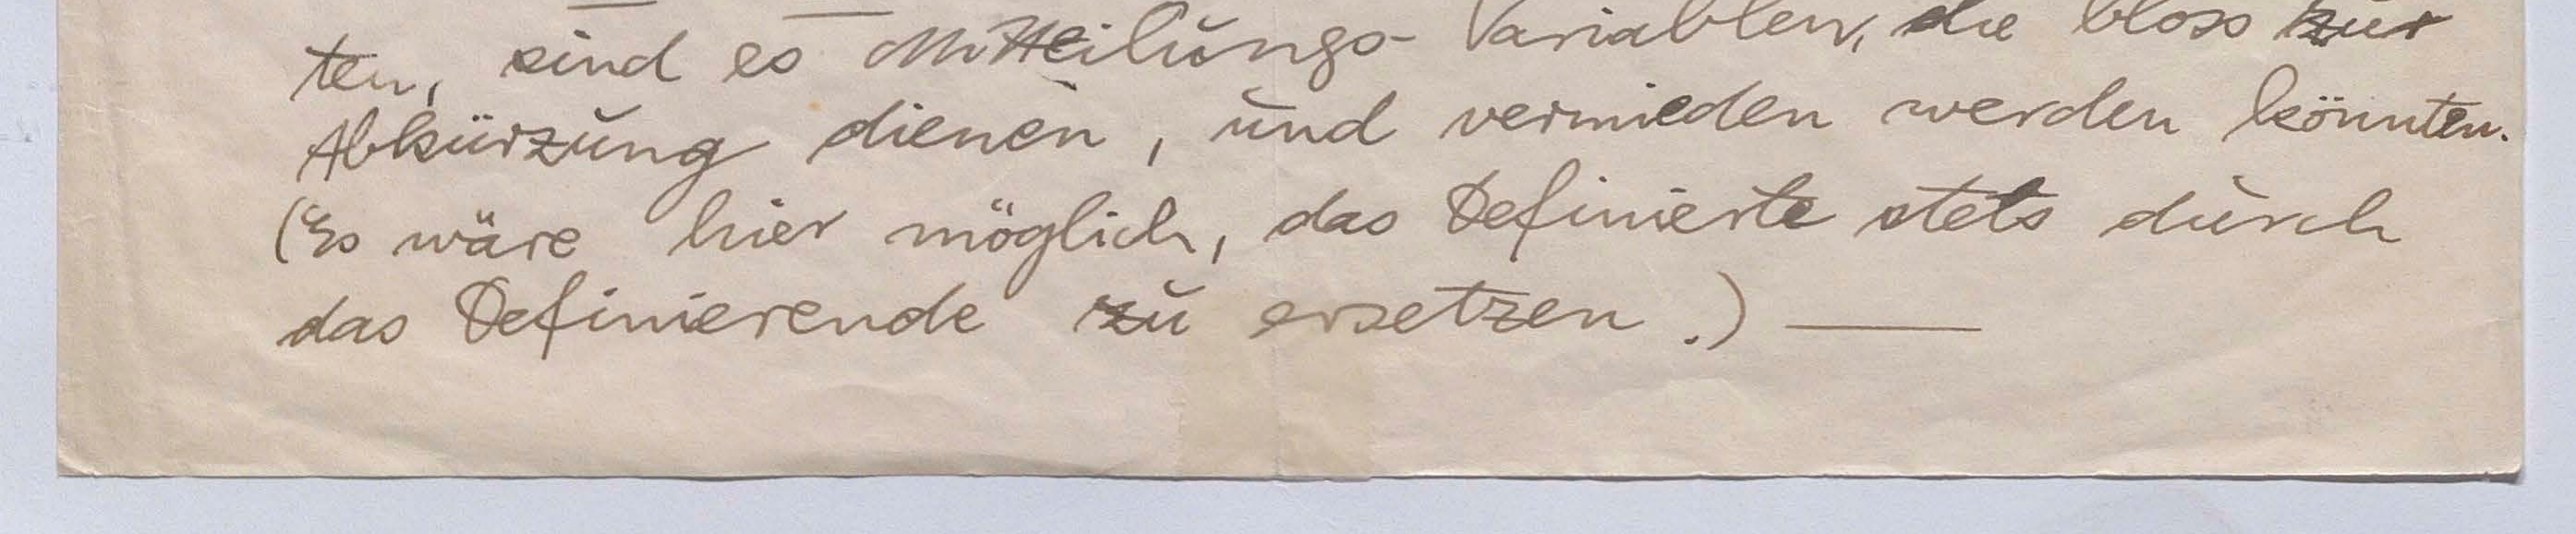 ten, sind es Mitteilungs-Variablen, die bloss zur
Abkürzung dienen, und vermieden werden könnten.
(Es wäre hier möglich, das Definierte stets durch
das Definierende zu ersetzen.) —